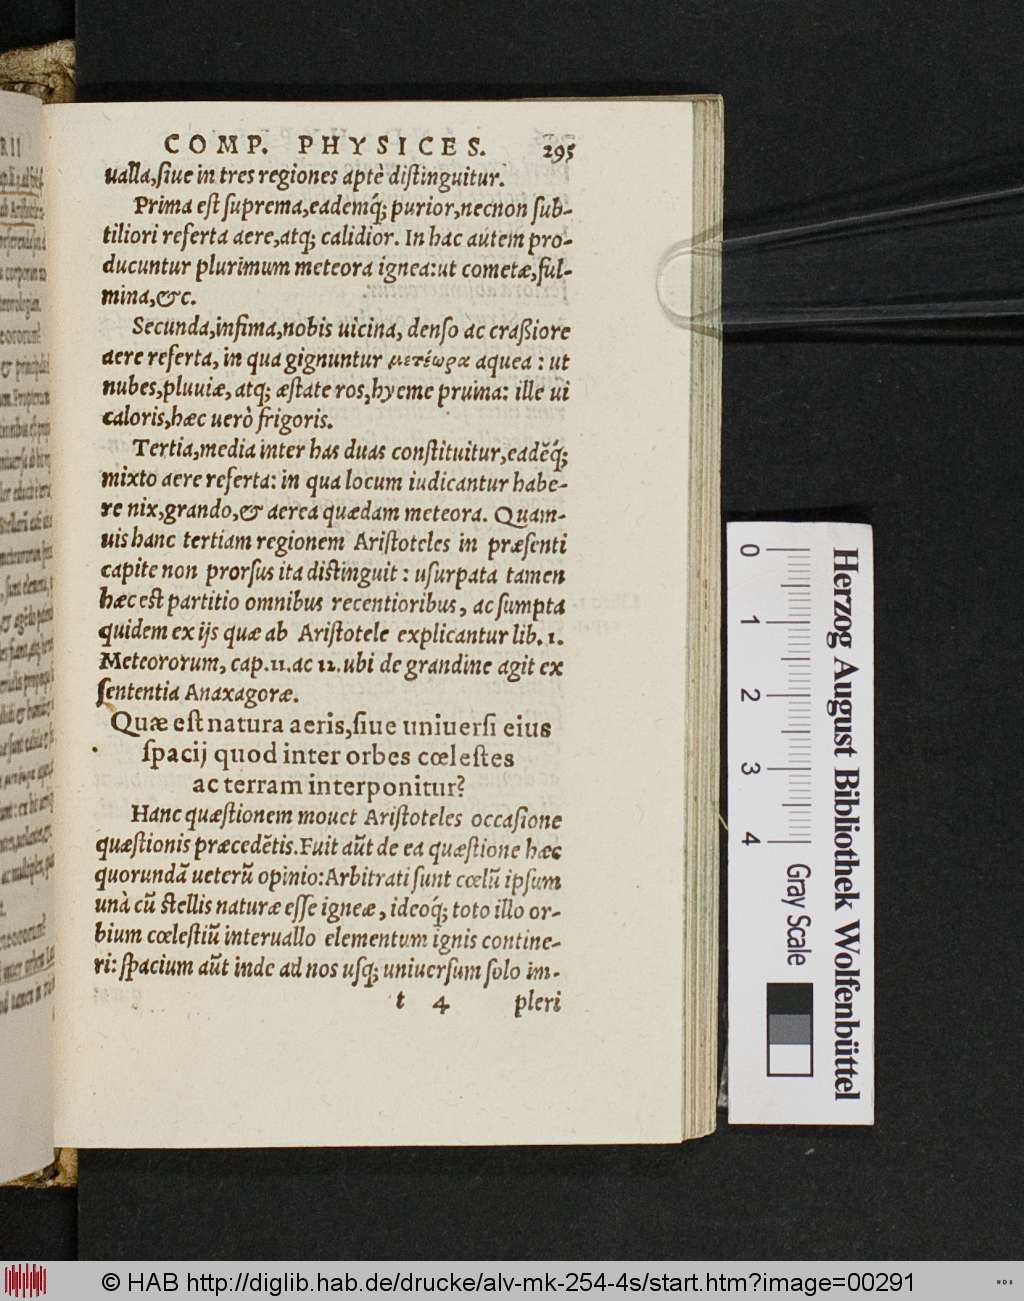 COMP. PHYSICES. 295
ualla, ſiue in tres regiones aptè diſtinguitur.
Prima eſt ſuprema, eademq́; purior, necnon ſub-
tiliori referta aere, atq; calidior. In hac autem pro-
ducuntur plurimum meteora ignea: ut cometæ, ful-
mina, &c.
Secunda, infima, nobis uicina, denſo ac craßiore
aere referta, in qua gignuntur μετέωρα aquea : ut
nubes, pluuiæ, atq; æſtate ros, hyeme pruina: ille ui
caloris, hæc uerò frigoris.
Tertia, media inter has duas conſtituitur, eadẽq́;
mixto aere referta: in qua locum iudicantur habe-
re nix, grando, & aerea quædam meteora. Quam-
uis hanc tertiam regionem Ariſtoteles in præſenti
capite non prorſus ita diſtinguit : uſurpata tamen
hæc eſt partitio omnibus recentioribus, ac ſumpta
quidem ex ijs quæ ab Ariſtotele explicantur lib. 1.
Meteororum, cap. 11. ac 12. ubi de grandine agit ex
ſententia Anaxagoræ.
Quæ eſt natura aeris, ſiue uniuerſi eius
ſpacij quod inter orbes cœleſtes
ac terram interponitur?
Hanc quæſtionem mouet Ariſtoteles occaſione
quæſtionis præcedẽtis. Fuit aũt de ea quæſtione hæc
quorundã ueterũ opinio: Arbitrati ſunt cœlũ ipſum
unà cũ ſtellis naturæ eſſe igneæ, ideoq́; toto illo or-
bium cœleſtiũ interuallo elementum ignis contine-
ri: ſpacium aũt inde ad nos uſq; uniuerſum ſolo im-
t 4 pleri
0 1 2 3 4
Gray Scale
Herzog August Bibliothek Wolfenbüttel
© HAB http://diglib.hab.de/drucke/alv-mk-254-4s/start.htm?image=00291